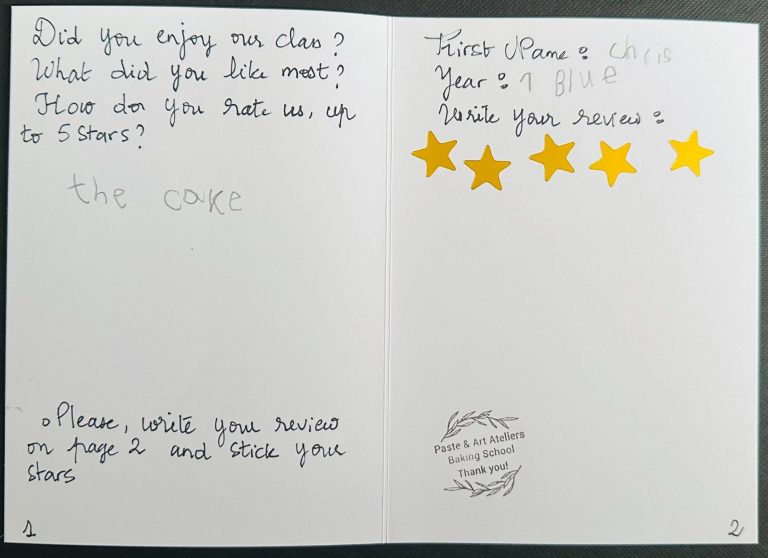 Did you enjoy our class?
What did you like most?
How do you rate us, up
to 5 stars?
the cake
Please, write your review
on page 2 and stick your
stars
1
First Name: Chris
Year: 1 Blue
Write your review:
Paste & Art Ateliers
Baking School
Thank you!
2